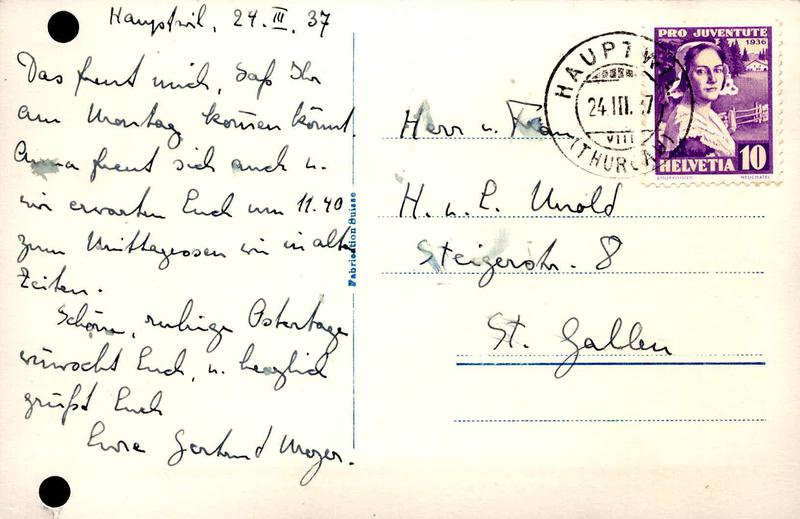 Hauptwil, 24. III. 37
Das freut mich, daß Ihr
am Montag kommen könnt.
Anna freut sich auch u.
wir erwarten Euch um 11.40
zum Mittagessen wie in alten
Zeiten.
Schöne, ruhige Ostertage
wünscht Euch, u. herzlich
grüßt Euch
Eure Gertrud Meyer.
Fabrication Suisse
PRO JUVENTUTE
1936
HELVETIA 10
COURVOISIER NEUCHATEL
HAUPTWIL
24.III.37
VIII
(THURGAU)
Herr u. Frau
H. u. L. Unold
Steigerstr. 8
St. Gallen